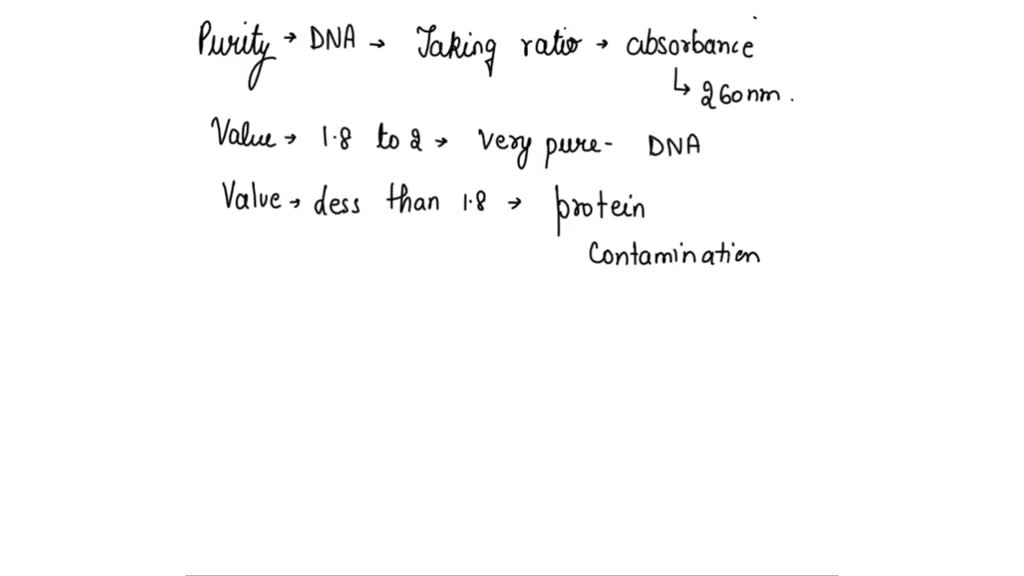 Purity → DNA → Taking ratio → absorbance
↳ 260nm.
Value → 1.8 to 2 → very pure - DNA
Value → less than 1.8 → protein
Contamination